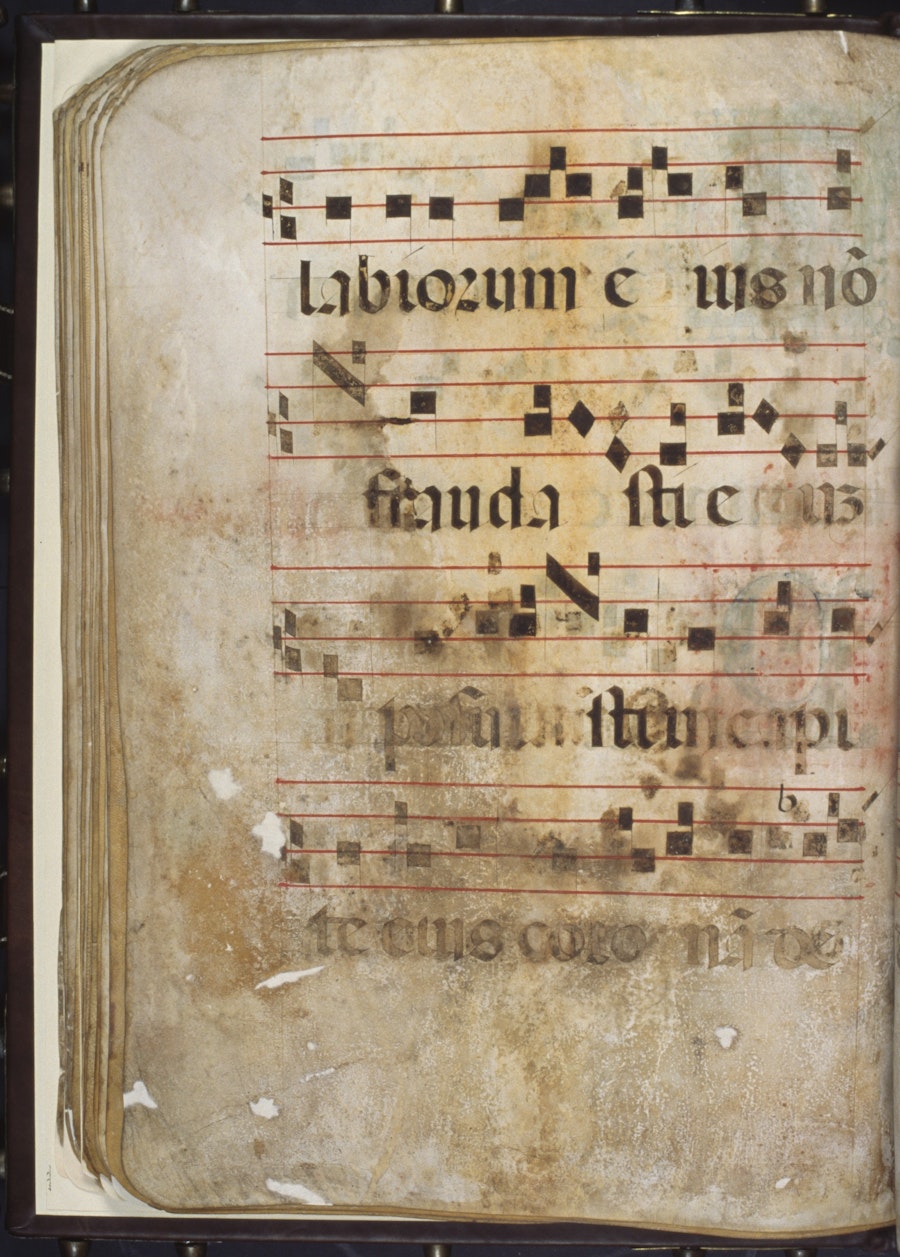 labiorum e ius nõ
frauda sti e um
posui sti in capi
te eius coro nã de